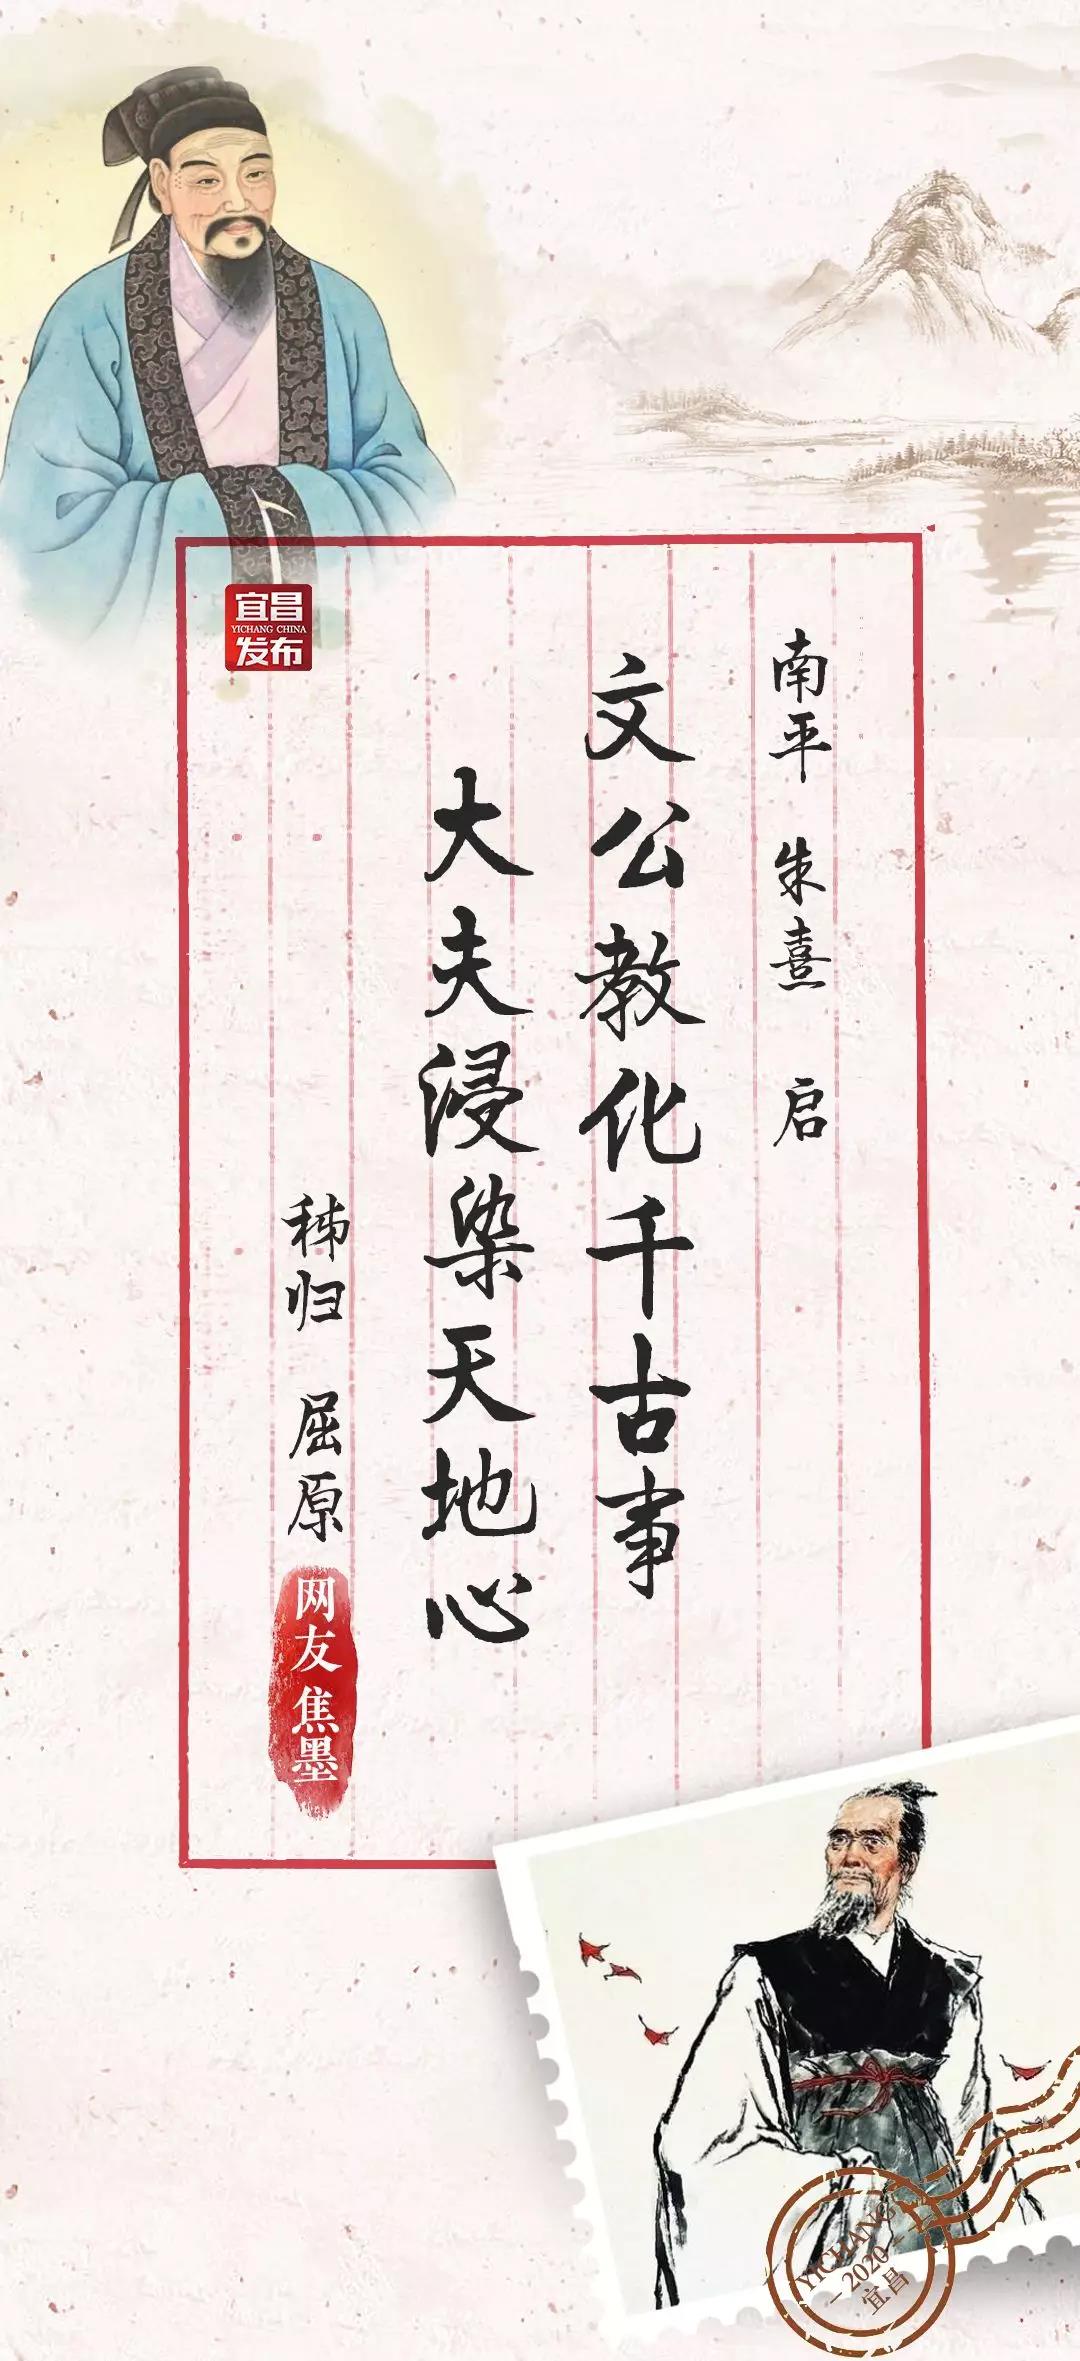 南平 朱熹 启
文公教化千古事
大夫浸染天地心
秭归 屈原
网友 焦墨
宜昌
YICHANG CHINA
发布
YICHANG
2020
宜昌